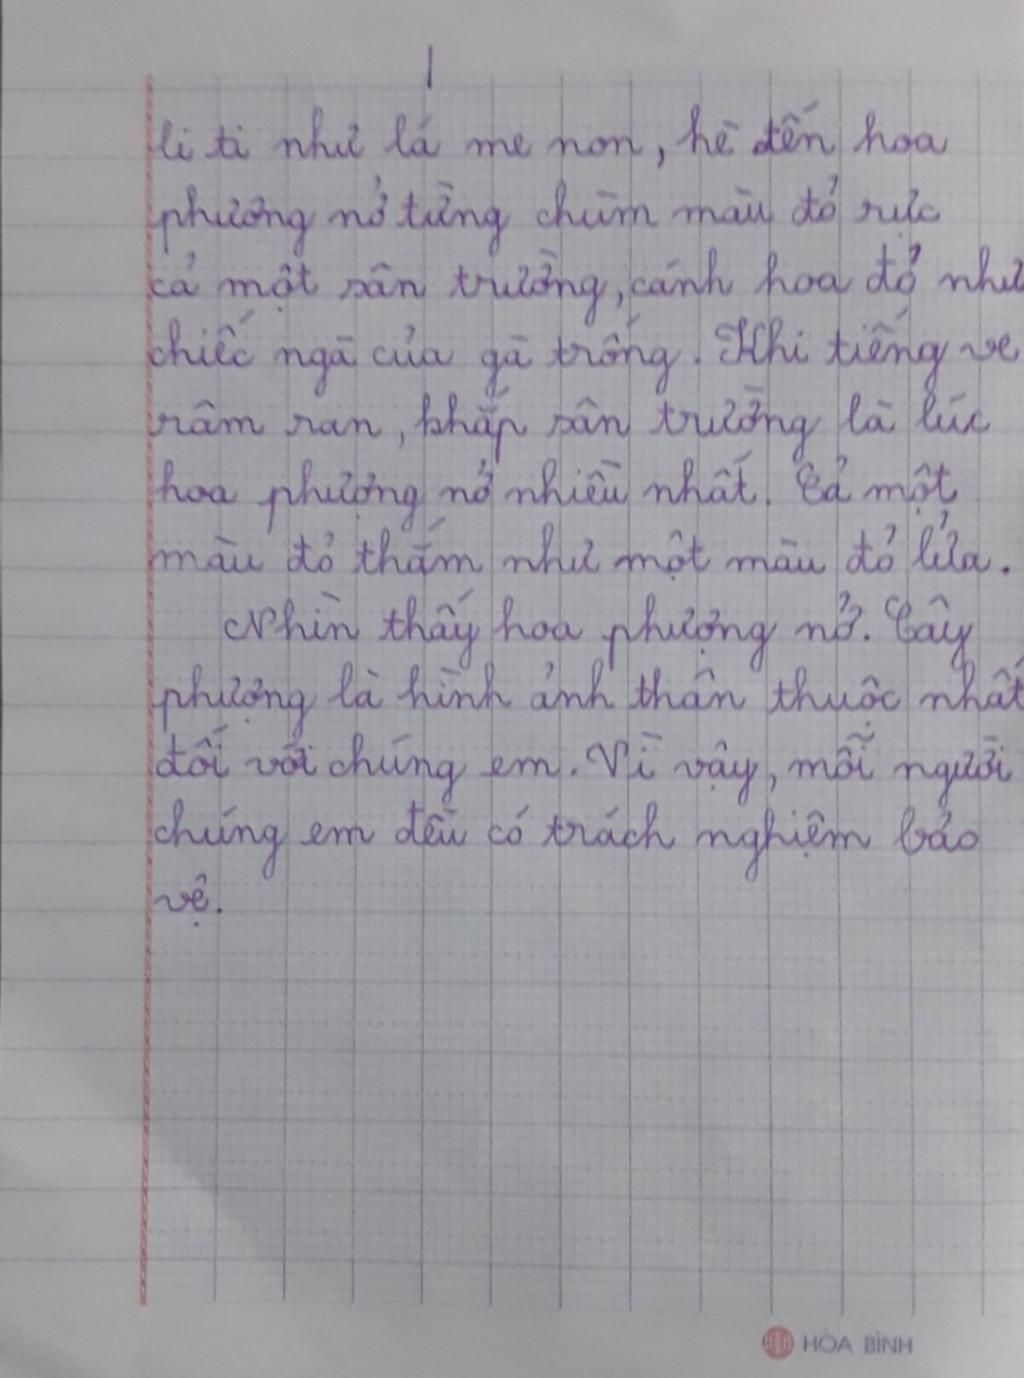 li ti như lá me non, hè đến hoa
phượng nở từng chùm màu đỏ rực
cả một sân trường, cánh hoa đỏ như
chiếc ngà của gà trống. Khi tiếng ve
râm ran, khắp sân trường là lúc
hoa phượng nở nhiều nhất. Cả một
màu đỏ thắm như một màu đỏ lửa.
Nhìn thấy hoa phượng nở. Cây
phượng là hình ảnh thân thuộc nhất
đối với chúng em. Vì vậy, mỗi người
chúng em đều có trách nghiệm bảo
vệ.
HÒA BÌNH